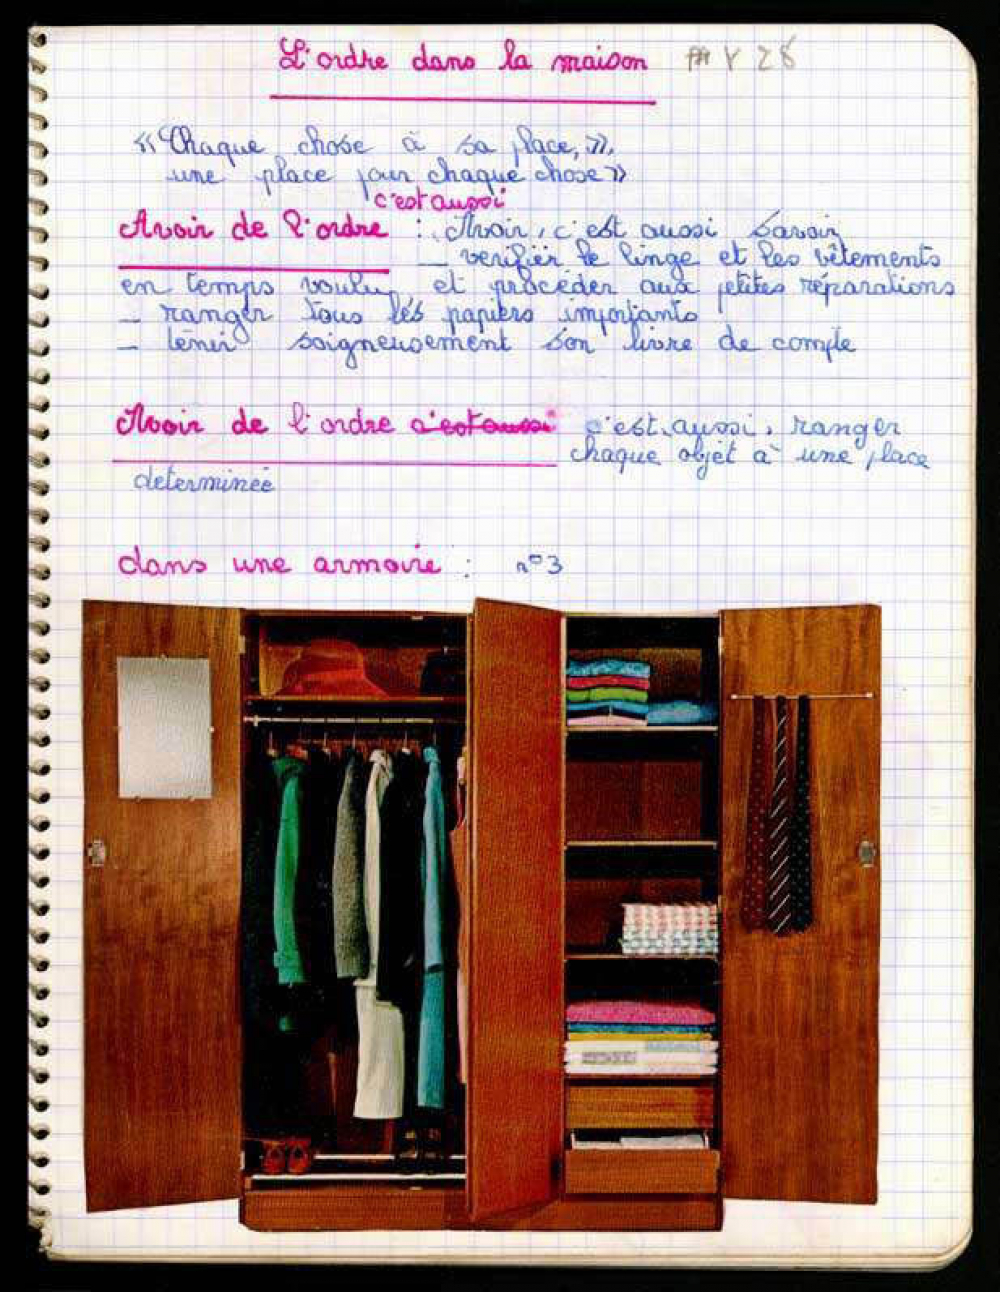 L'ordre dans la maison
« Chaque chose à sa place, »,
une place pour chaque chose »
c'est aussi
Avoir de l'ordre : Avoir, c'est aussi savoir
_ verifier le linge et les vêtements
en temps voulu, et procéder aux petites réparations
_ ranger tous les papiers importants
_ tenir soigneusement son livre de compte
Avoir de l'ordre c'est aussi c'est aussi, ranger
chaque objet à une place
determinée
dans une armoire : n°3